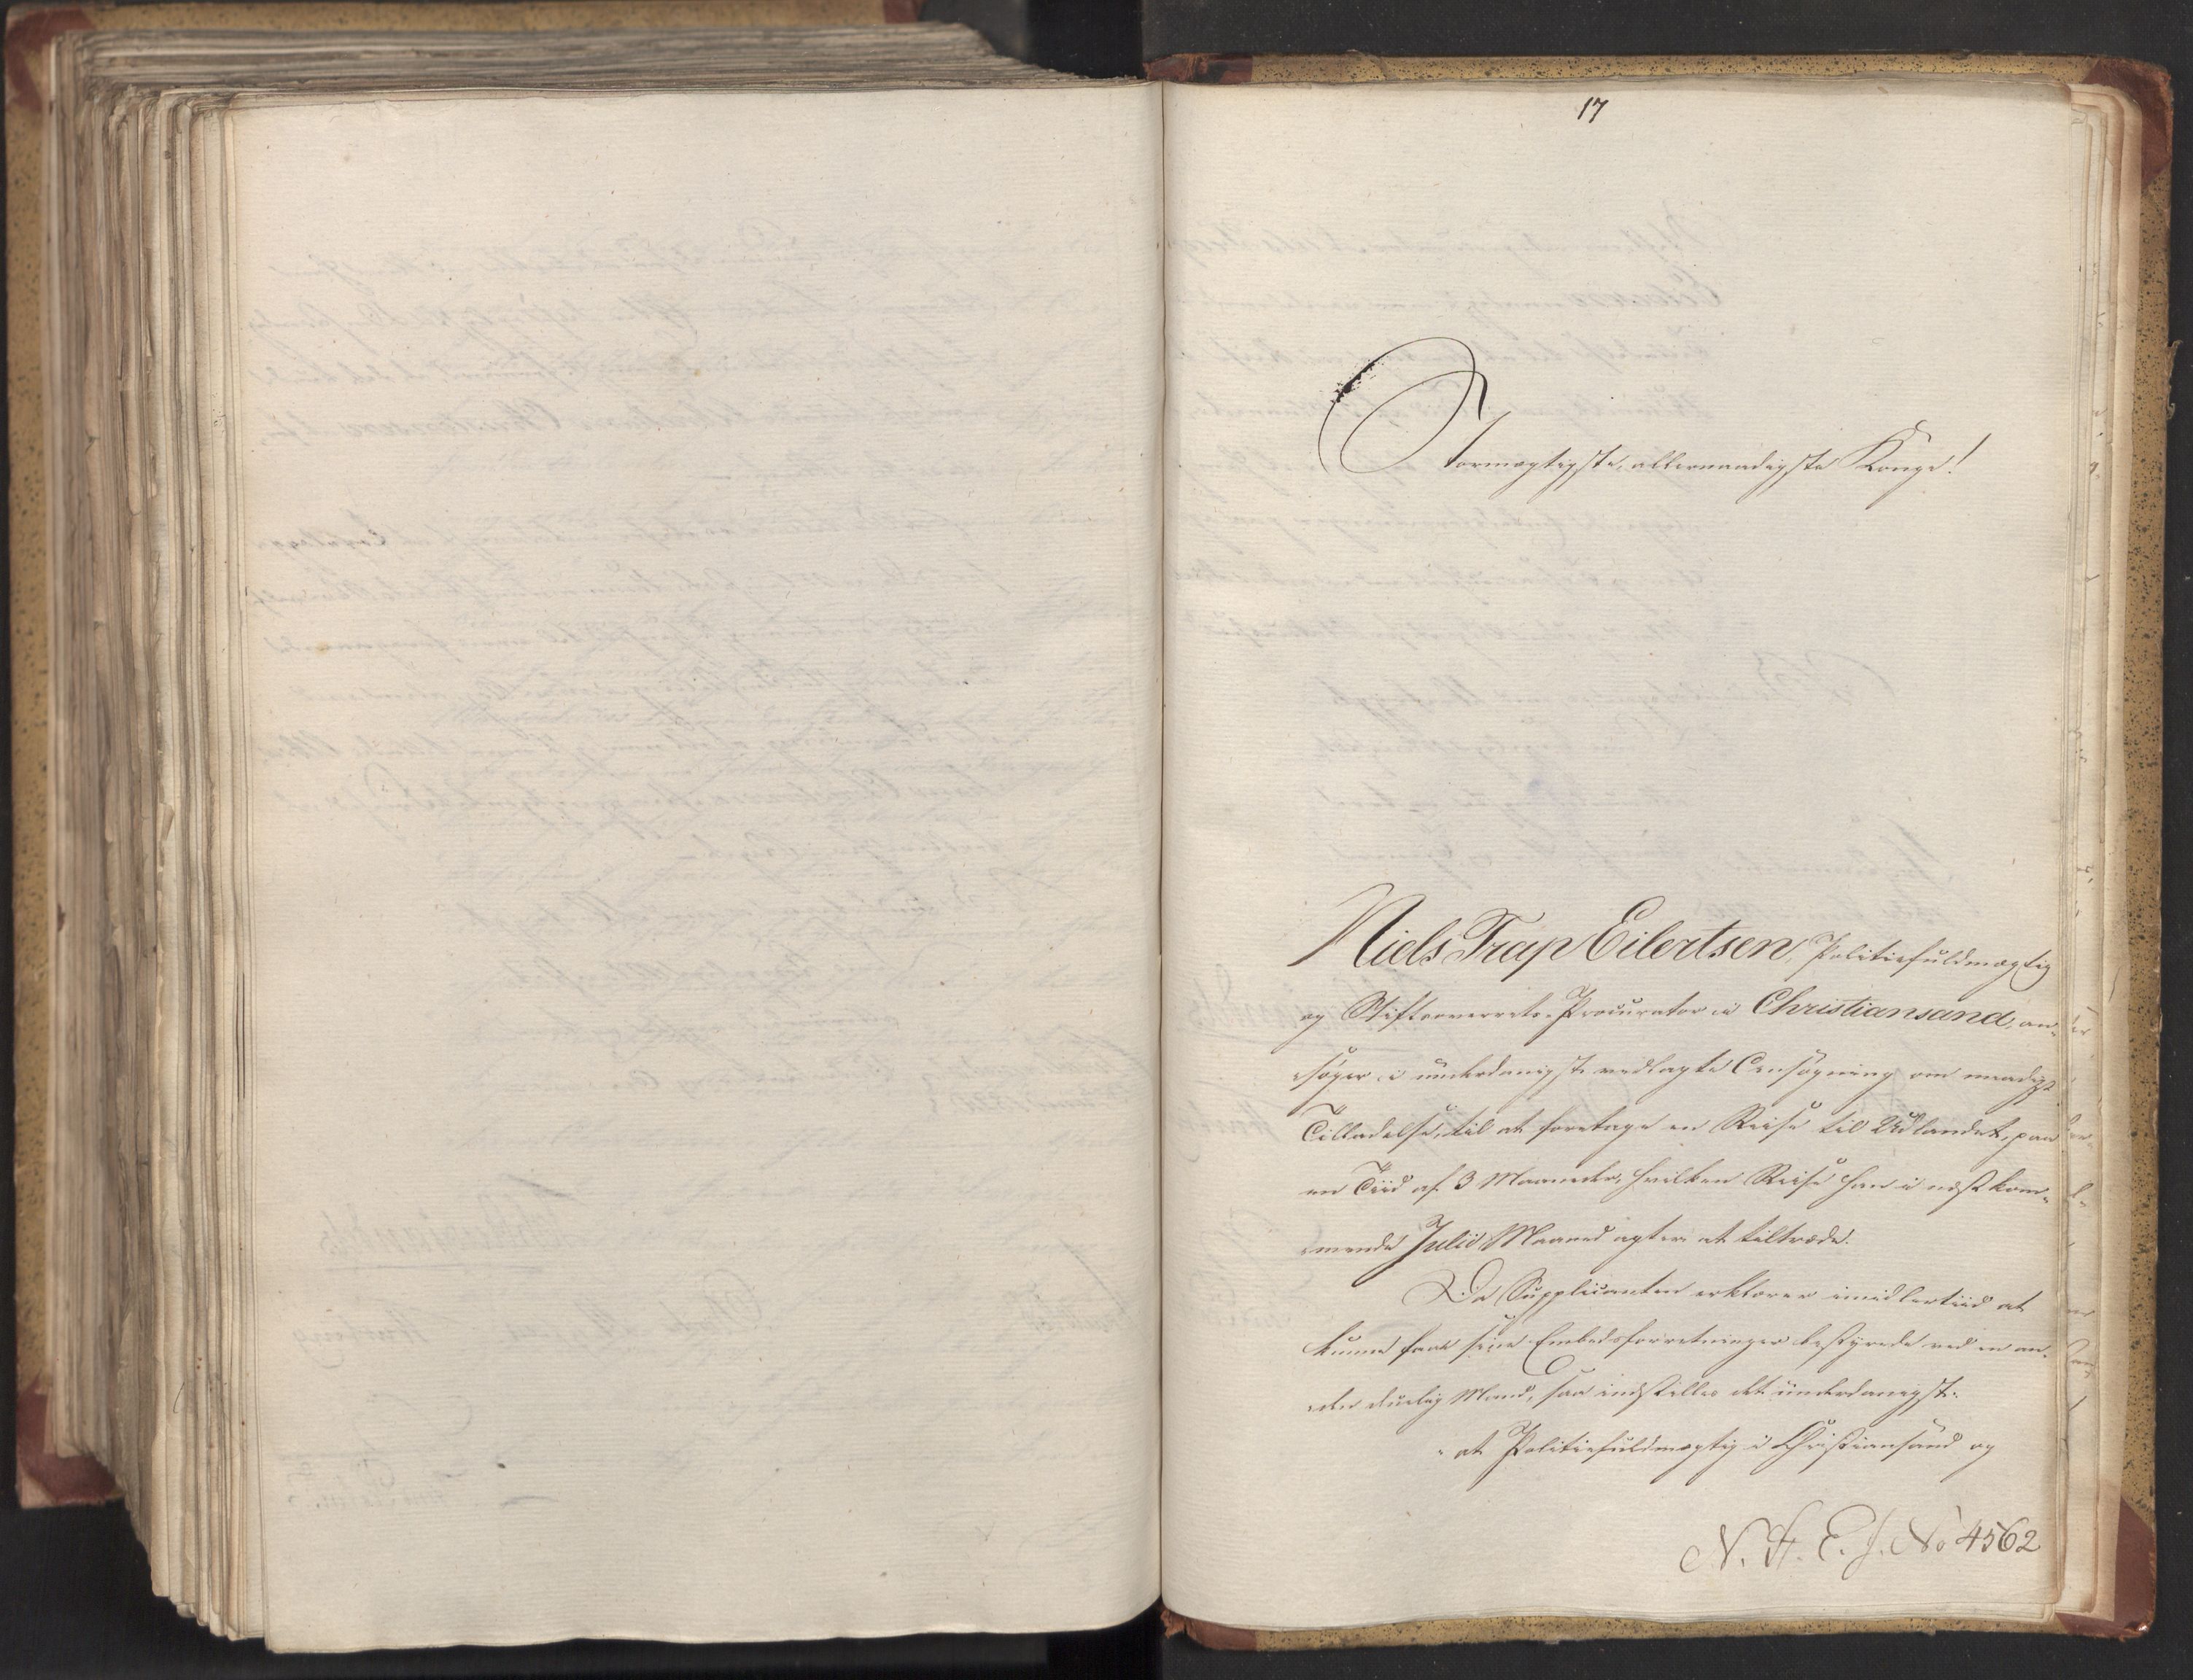 17
Stormægtigste, allernaadigste Konge!
Niels Trap Eilertsen, Politiefuldmægtig
og Stiftsoverrets-Procurator i Christiansand, an-
søger i underdanigst vedlagte Ansøgning om naadigst
Tilladelse, til at foretage en Reise til Udlandet, paa
en Tiid af 3 Maaneder, hvilken Reise han i næstkom-
mende Julii Maaned agter at tiltræde.
Da Supplicanten erklærer imidlertiid at
kunne faae sine Embedsforretninger bestyrede ved en an-
den duelig Mand, saa indstilles det underdanigst:
"at Politiefuldmægtig i Christiansand og
N. St. E. J. No 4562